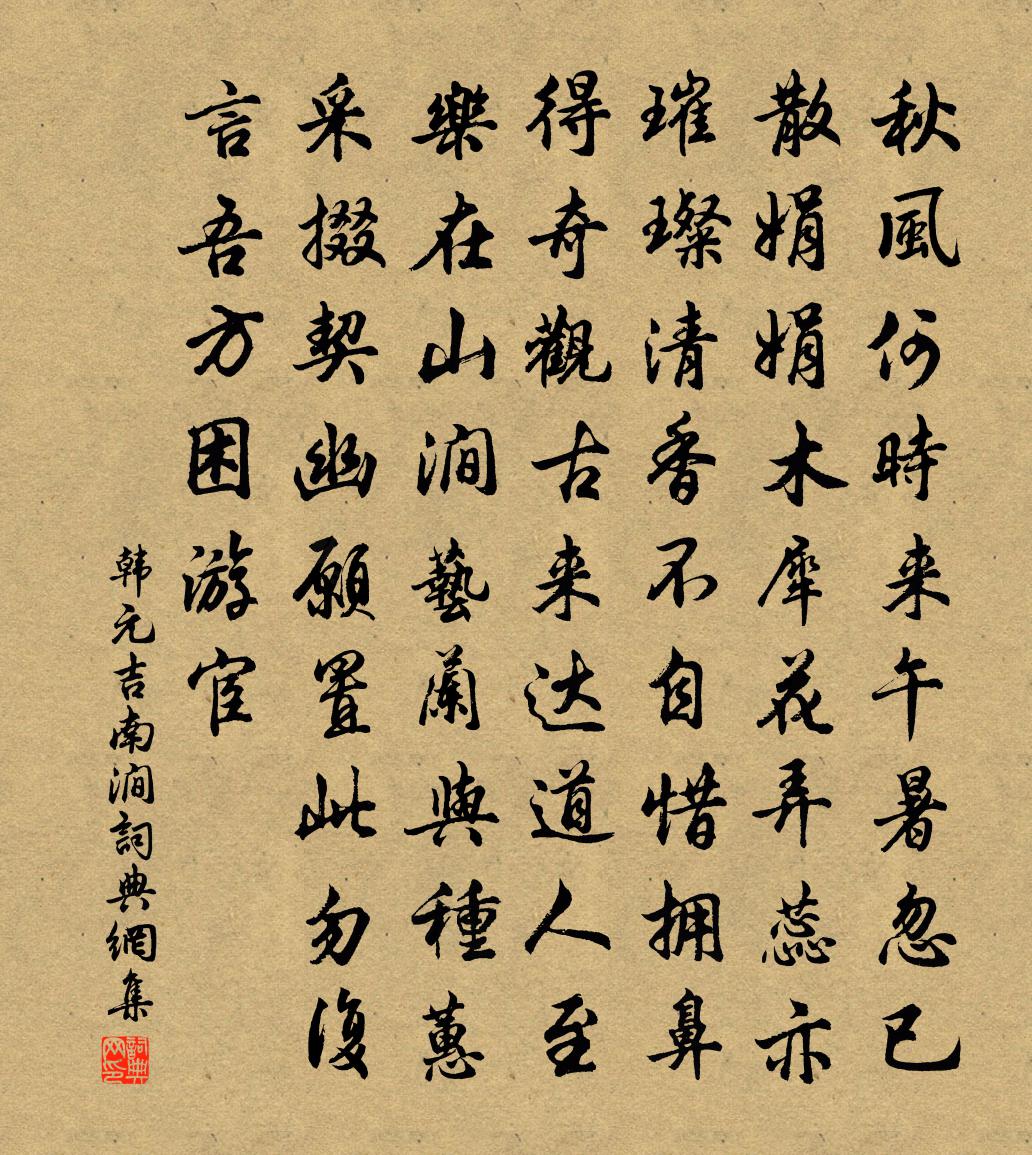 秋風何時来午暑忽已
散娟娟木犀花弄蕊亦
璀璨清香不自惜拥鼻
得奇觀古来达道人至
樂在山澗藝蘭與種蕙
采掇契幽願置此勿復
言吾方困游宦
韩元吉南澗詞典網集
詞典网印